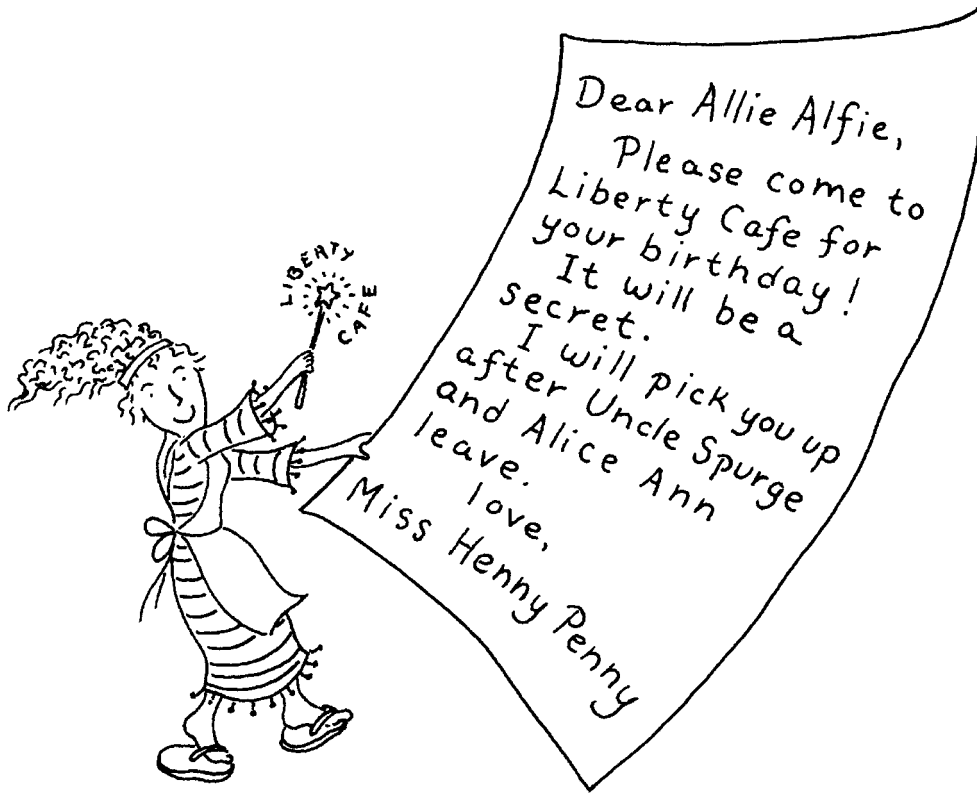 LIBERTY
CAFE
Dear Allie Alfie,
Please come to
Liberty Cafe for
your birthday!
It will be a
secret.
I will pick you up
after Uncle Spurge
and Alice Ann
leave.
love,
Miss Henny Penny